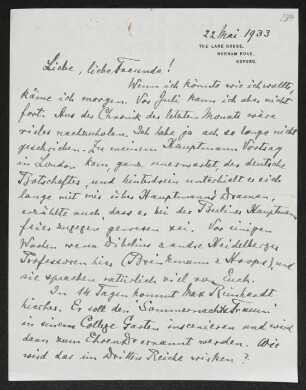 22 Mai 1933
THE LANE HOUSE,
NORHAM ROAD,
OXFORD.
Liebe, liebe Freunde!
Wenn ich könnte wie ich wollte,
käme ich morgen. Vor Juli kann ich aber nicht
fort. Aus der Chronik des letzten Monats wäre
vieles nachzuholen. Ich habe ja ach so lange nicht
geschrieben. Zu meinem Hauptmann Vortrag
in London kam, ganz unerwartet, der deutsche
Botschafter, und hinterdrein unterhielt er sich
lange mit mir über Hauptmanns Dramen,
erzählte auch dass er bei der Berliner Hauptmann
feier zugegen gewesen sei. Vor einigen
Wochen waren Dibelius u andre Heidelberger
Professoren hier (Brinkmann u Hoops), und
sie sprachen natürlich viel von Euch.
In 14 Tagen kommt Max Reinhardt
hierher. Er soll den Sommernachts Traum
in einem College Garten inscenieren und wird
dann zum Ehren ernannt werden. Wie
wird das im Dritten Reiche wirken?